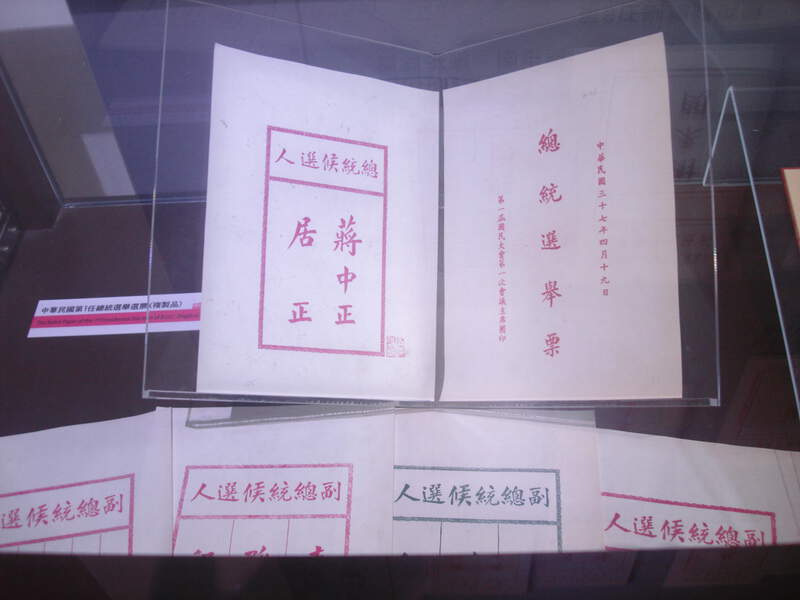 總統候選人
蔣中正
居正
總統選舉票
中華民國三十七年四月十九日
第一屆國民大會第一次會議主席團印
中華民國第1任總統選舉選票(複製品)
副總統候選人
副總統候選人
副總統候選人
副總統候選人